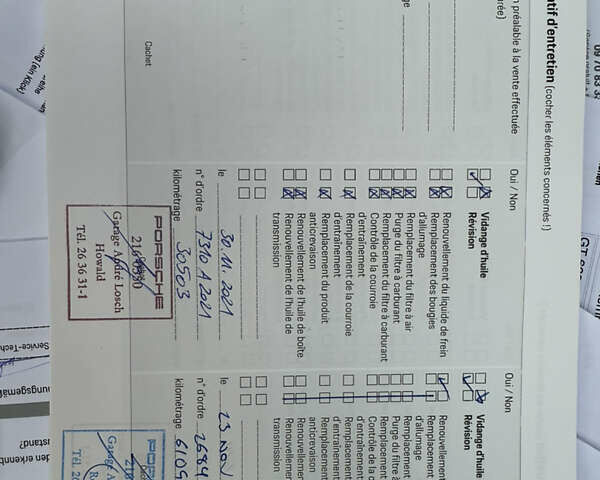 atif d'entretien (cocher les éléments concernés !)
n préalable à la vente effectuée
Cachet
Oui / Non
Vidange d'huile
Révision
Renouvellement du liquide de frein
Remplacement des bougies
d'allumage
Remplacement du filtre à air
Purge du filtre à carburant
Remplacement du filtre à carburant
Contrôle de la courroie
d'entraînement
Remplacement de la courroie
d'entraînement
Remplacement du produit
anticrevaison
Renouvellement de l'huile de boîte
Renouvellement de l'huile de
transmission
le 30.11.2021
n° d'ordre 7310 A 2021
kilométrage 30503
PORSCHE
Garage André Losch
Howald
Tél. 26 36 31-1
Oui / Non
Vidange d'huile
Révision
Renouvellement
Remplacement
d'allumage
Remplacement
Purge du filtre à
Remplacement
Contrôle de la c
d'entraînement
Remplacement
d'entraînement
Remplacement
anticrevaison
Renouvellement
Renouvellement
transmission
le 23 NOV
n° d'ordre 2684
kilométrage 6109
PORSC
Garage A
Tél. 26
ung (ein Klick)
Service-Tech
nungsgemäß
den erkennb
stand?